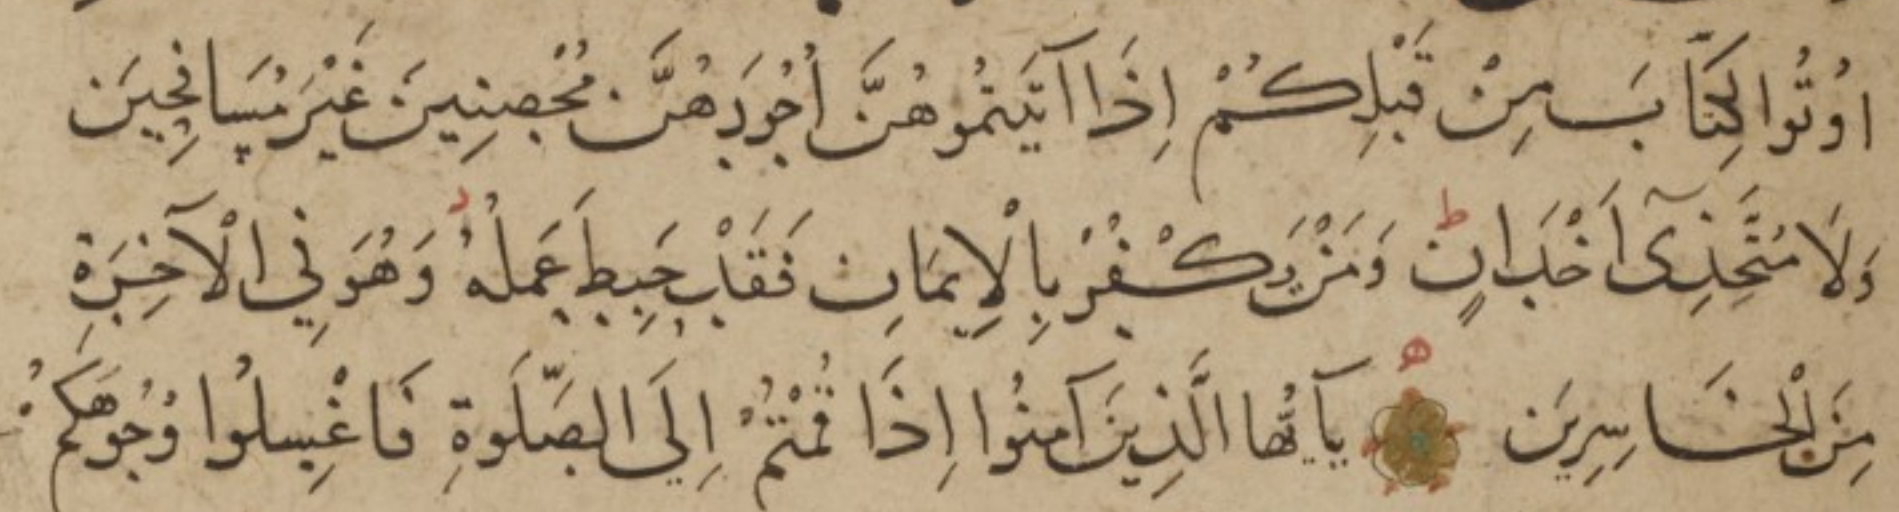 اُوتُوا لكِتَابَ مِنْ قَبْلِكُمْ اِذَا آتَيْتُمُوهُنَّ اُجُورَهُنَّ مُحْصِنِينَ غَيْرَ مُسَافِحِينَ
وَلَا مُتَّخِذِىٓ اَخْدَانٍ ط وَمَنْ يَكْفُرْ بِالْاِيمَانِ فَقَدْ حَبِطَ عَمَلُهُ وَهُوَ فِي الْآخِرَةِ
مِنَ الْخَاسِرِينَ يَآ اَيُّهَا الَّذِينَ آمَنُوا اِذَا قُمْتُمْ اِلَى الصَّلَوةِ فَاغْسِلُوا وُجُوهَكُمْ